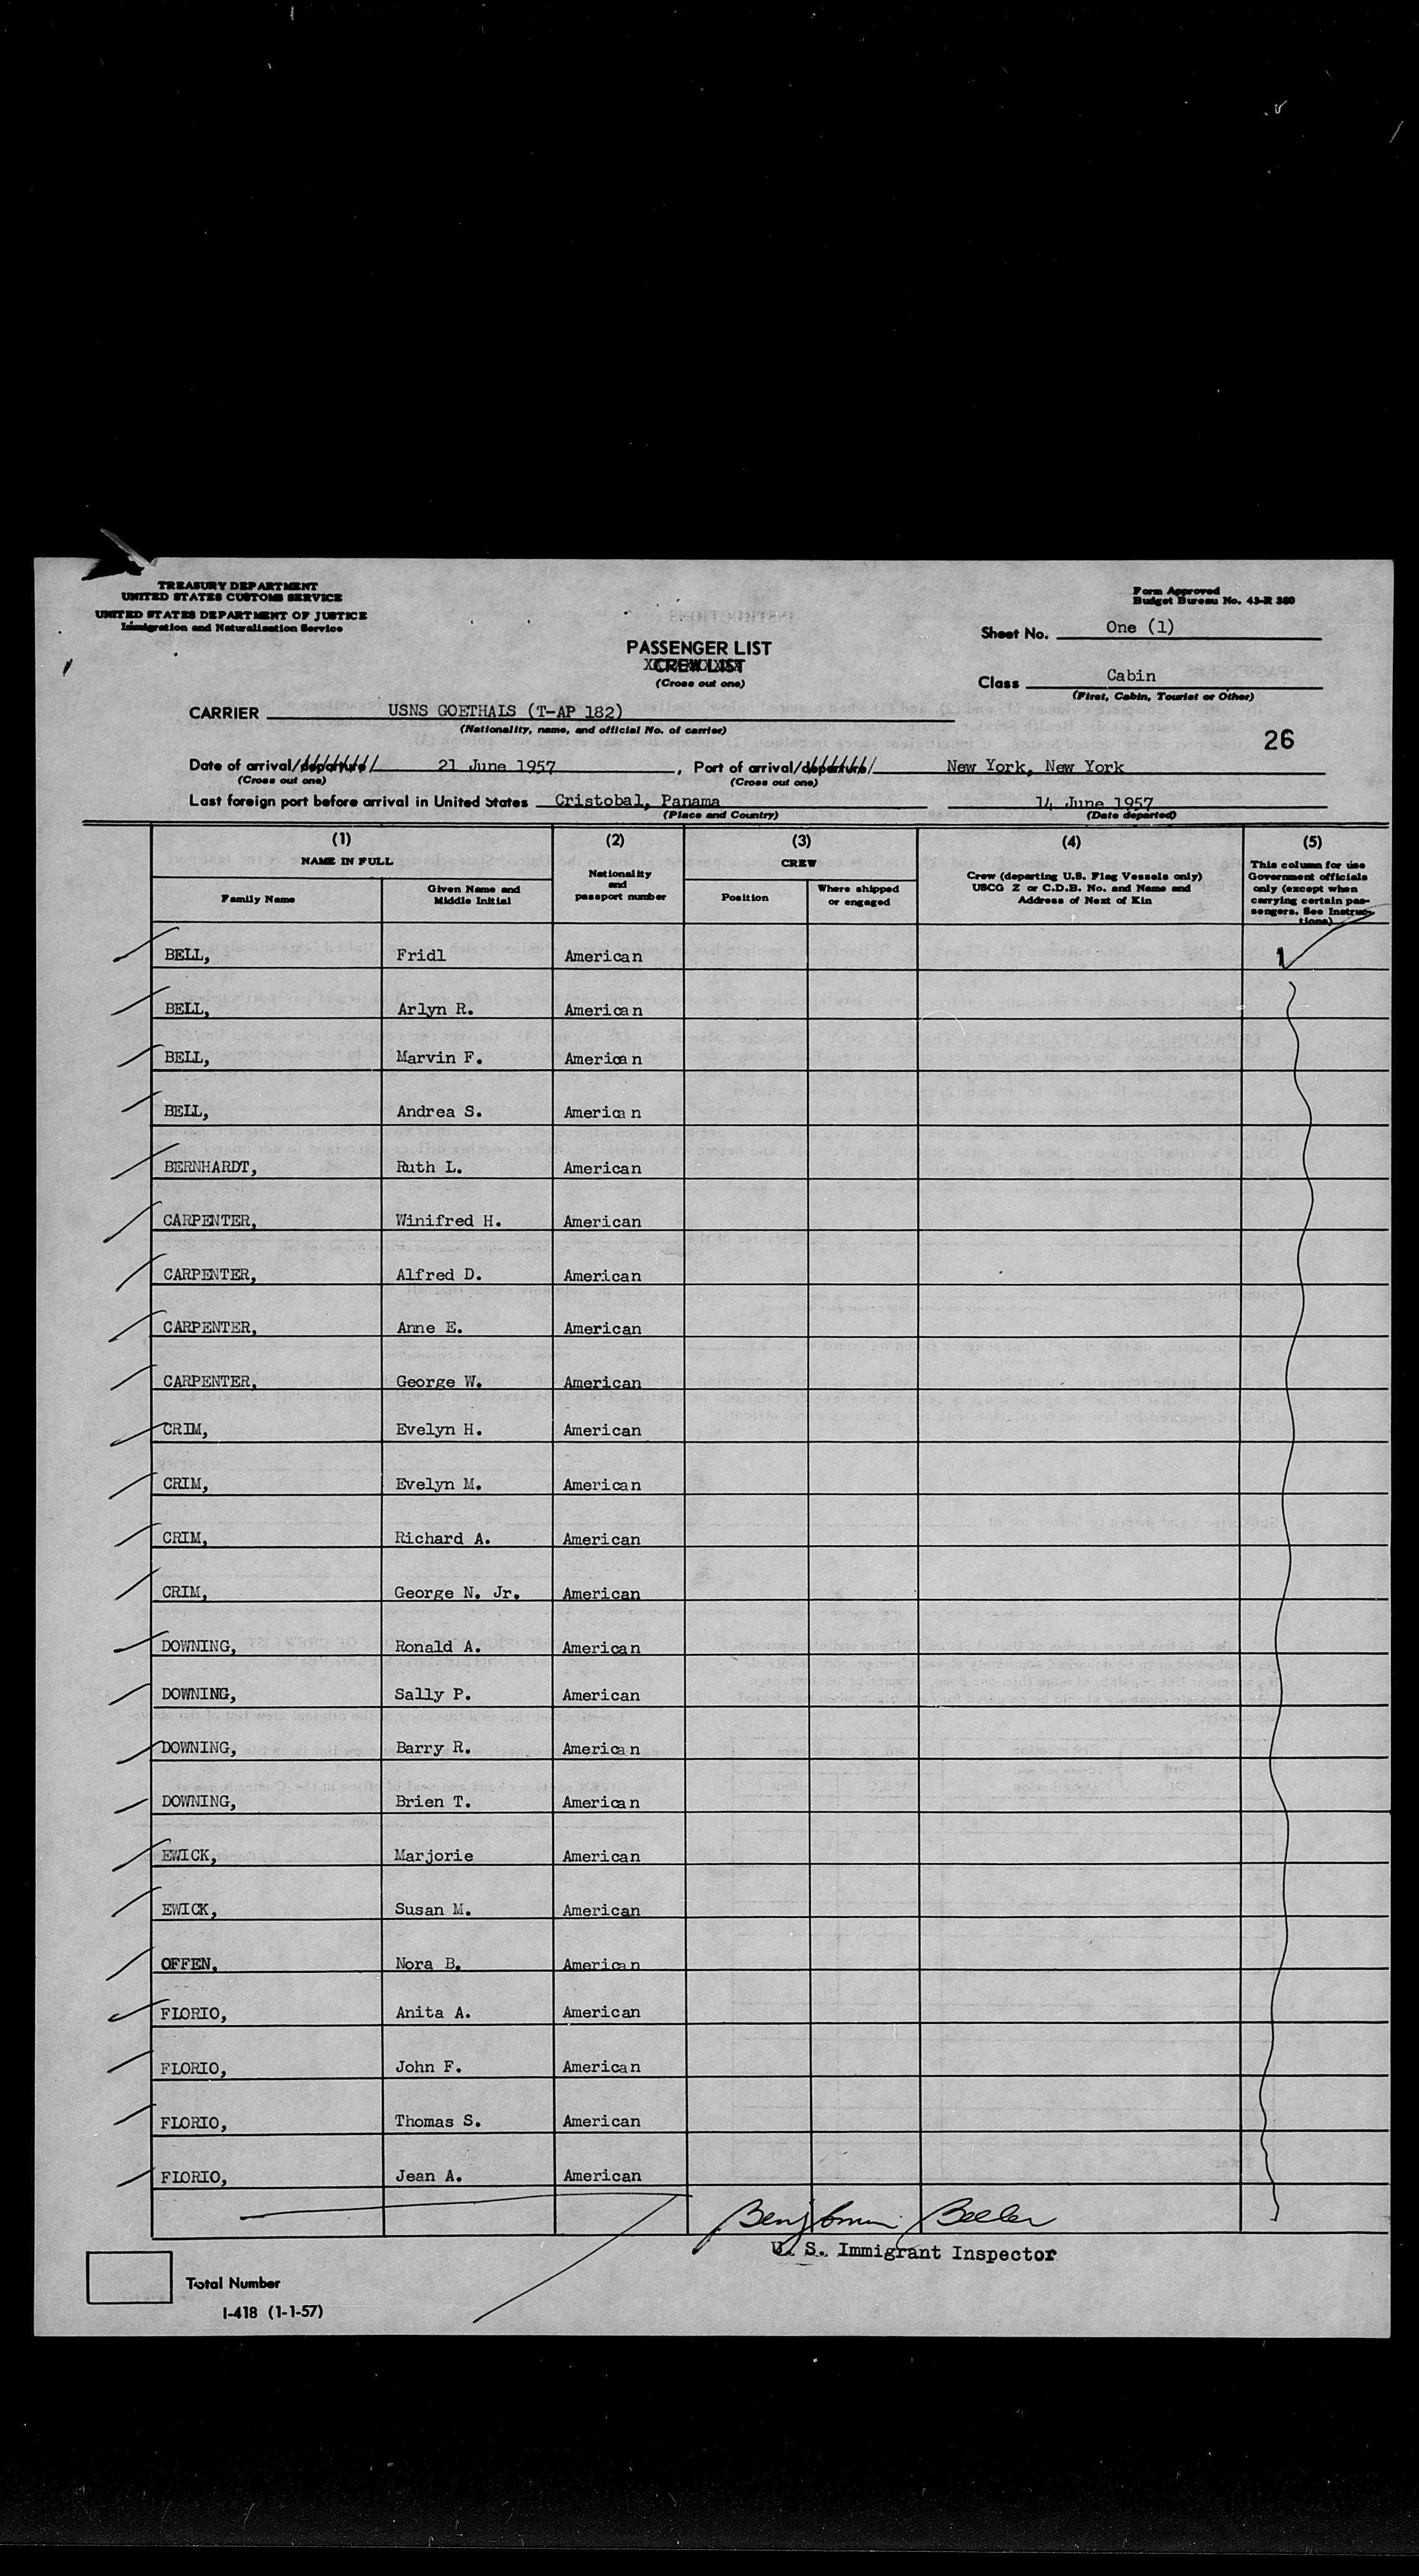 TREASURY DEPARTMENT
UNITED STATES CUSTOMS SERVICE
UNITED STATES DEPARTMENT OF JUSTICE
Immigration and Naturalization Service
Form Approved
Budget Bureau No. 43-R 380
Sheet No. One (1)
PASSENGER LIST
CREW LIST
(Cross out one)
Class Cabin
(First, Cabin, Tourist or Other)
CARRIER USNS GOETHALS (T-AP 182)
(Nationality, name, and official No. of carrier)
26
Date of arrival/departure/ 21 June 1957, Port of arrival/departure/ New York, New York
(Cross out one) (Cross out one)
Last foreign port before arrival in United States Cristobal, Panama 14 June 1957
(Place and Country) (Date departed)
(1) (2) (3) (4) (5)
NAME IN FULL
Family Name
Given Name and
Middle Initial
Nationality
and
passport number
CREW
Position
Where shipped
or engaged
Crew (departing U.S. Flag Vessels only)
USCG Z or C.D.B. No. and Name and
Address of Next of Kin
This column for use
Government officials
only (except when
carrying certain pas-
sengers. See Instruc-
tions)
BELL, Fridl American
BELL, Arlyn R. American
BELL, Marvin F. American
BELL, Andrea S. American
BERNHARDT, Ruth L. American
CARPENTER, Winifred H. American
CARPENTER, Alfred D. American
CARPENTER, Anne E. American
CARPENTER, George W. American
CRIM, Evelyn H. American
CRIM, Evelyn M. American
CRIM, Richard A. American
CRIM, George N. Jr. American
DOWNING, Ronald A. American
DOWNING, Sally P. American
DOWNING, Barry R. American
DOWNING, Brien T. American
EWICK, Marjorie American
EWICK, Susan M. American
OFFEN, Nora B. American
FLORIO, Anita A. American
FLORIO, John F. American
FLORIO, Thomas S. American
FLORIO, Jean A. American
Benjamin Beeler
U. S. Immigrant Inspector
Total Number
I-418 (1-1-57)